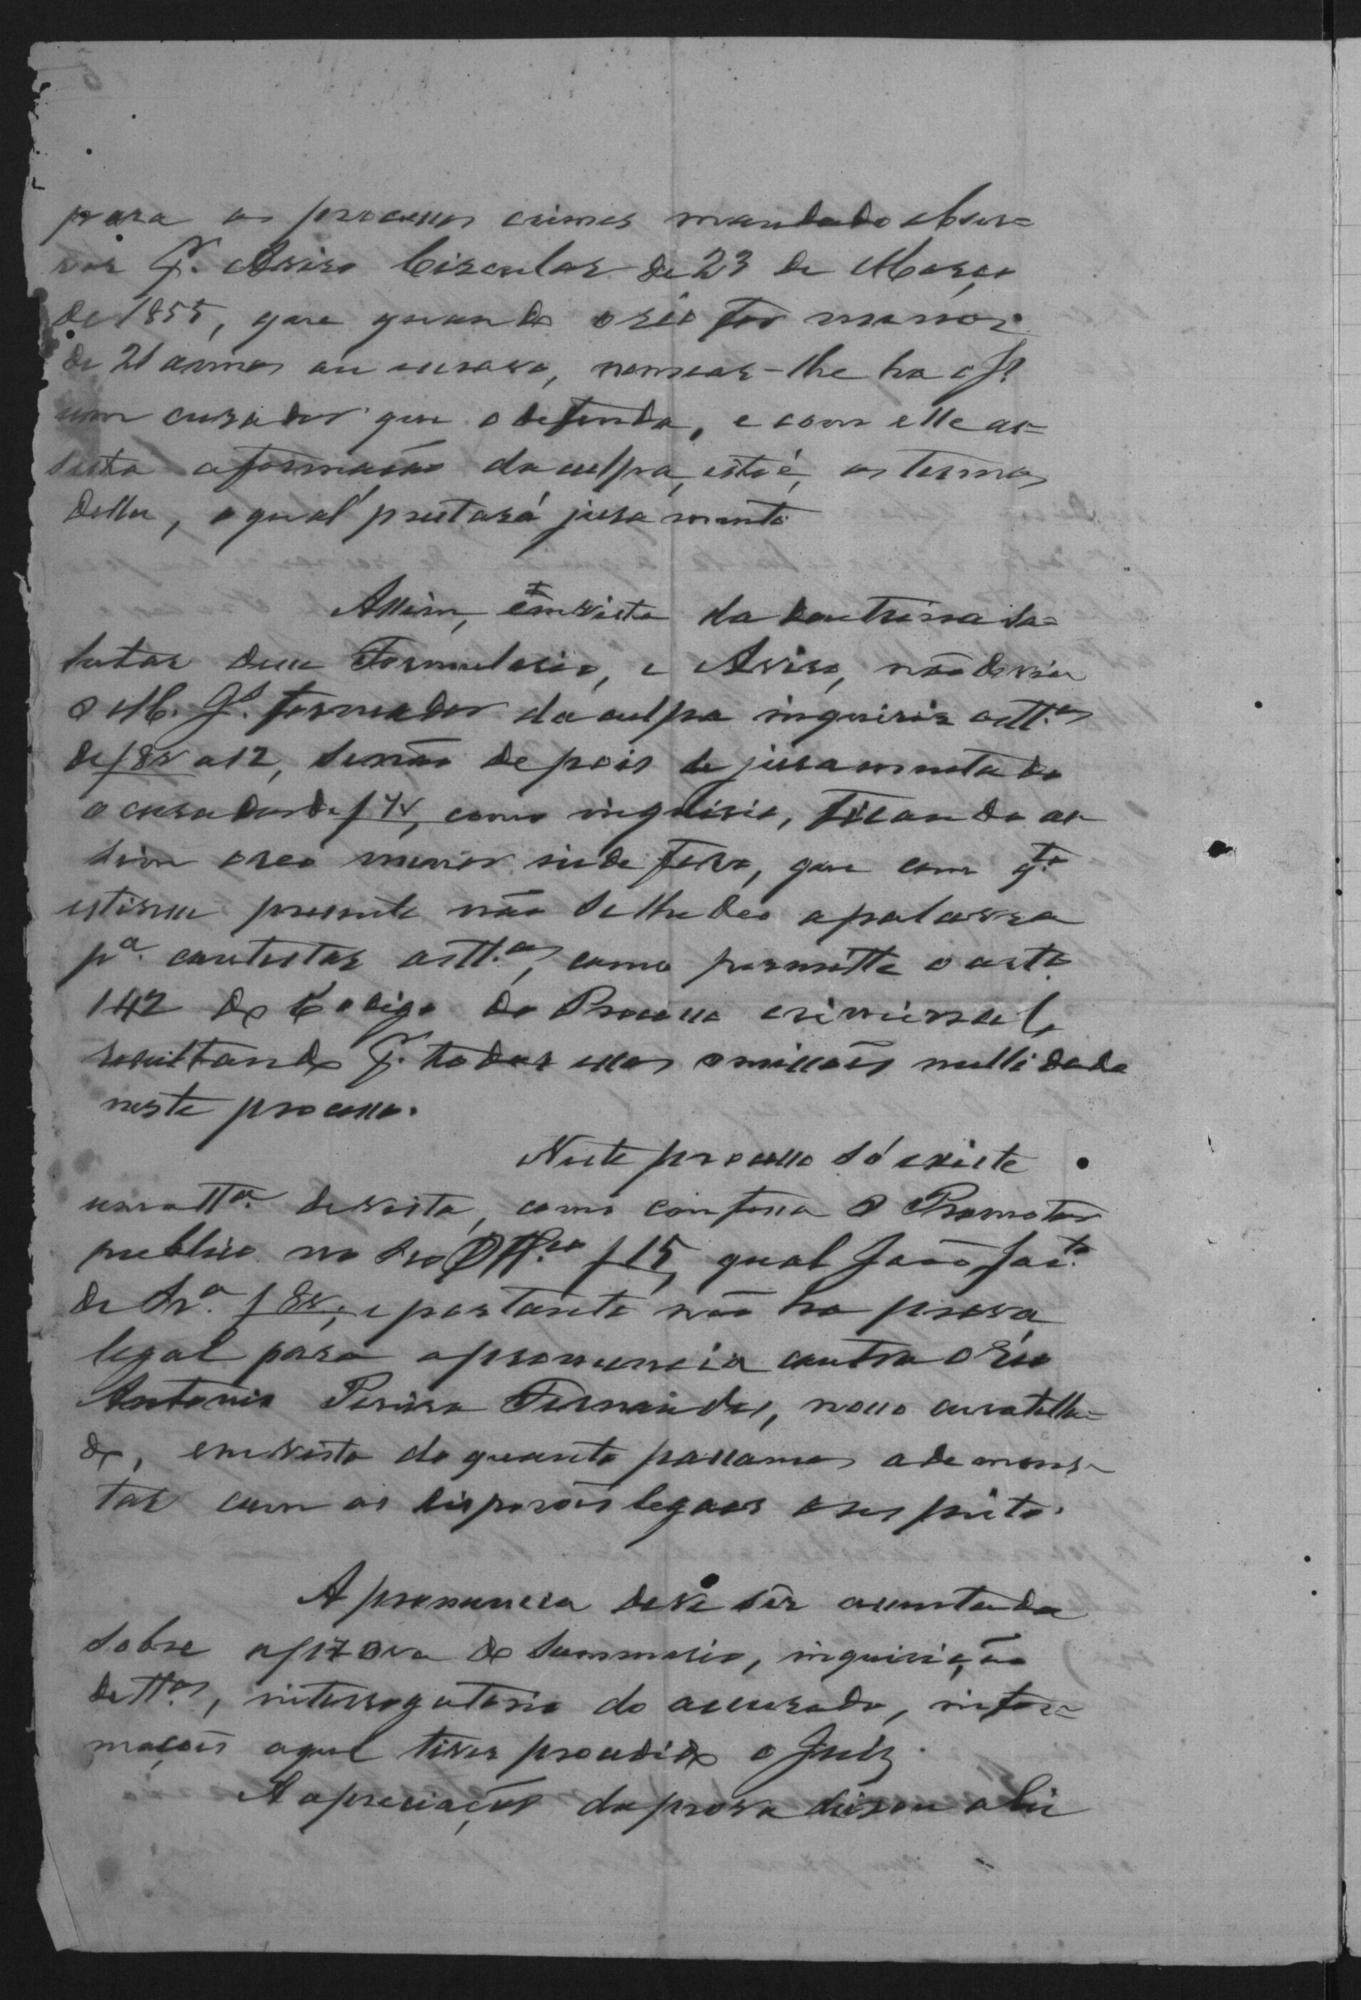 para os processos crimes mandado obser=
var p. Aviso Circular de 23 de Março
de 1855, que quando o réo for menor
de 21 annos ou escravo, nomear-lhe ha o Js.
um curador que o defenda, e com elle as=
sista a formação da culpa, isto é, os termos
della, o qual prestará juramento
Assim, em vista da doutrina sa=
lutar desse Formulario, e Aviso, não devia
o M. Js. formador da culpa inquirir as tt.as
de f 8v a 12, senão depois de juramentado
o curador de f 7v, como inquirio, ficando as
sim o reo menor indefeso, que com q.to
estivesse presente não se lhe deo a palavra
p.a contestar as tt.as, como permitte o art.
142 do Codigo do Processo criminal,
resultando p. todas essas omissões nullidade
neste processo.
Neste processo só existe
uma tt.a de vista, como confessa o Promotor
publico no seo f 15, qual João
de f 8v, e portanto não ha prova
legal para a pronuncia contra o réo
Antonio Pereira Fernandes, nosso curatella=
do, em vista do quanto passamos a demons-
trar com as disposições legaes a respeito.
A pronuncia deve ser assentada
sobre a prova do summario, inquirição
de tt.as, interrogatorio do accusado, infor=
mações a que tiver procedido o Juiz.
A apreciação da prova deixou a lei